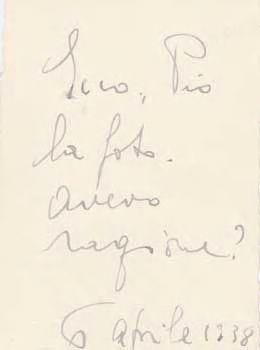 Ecco, Pio
la foto.
avevo
ragione?
6 aprile 1938